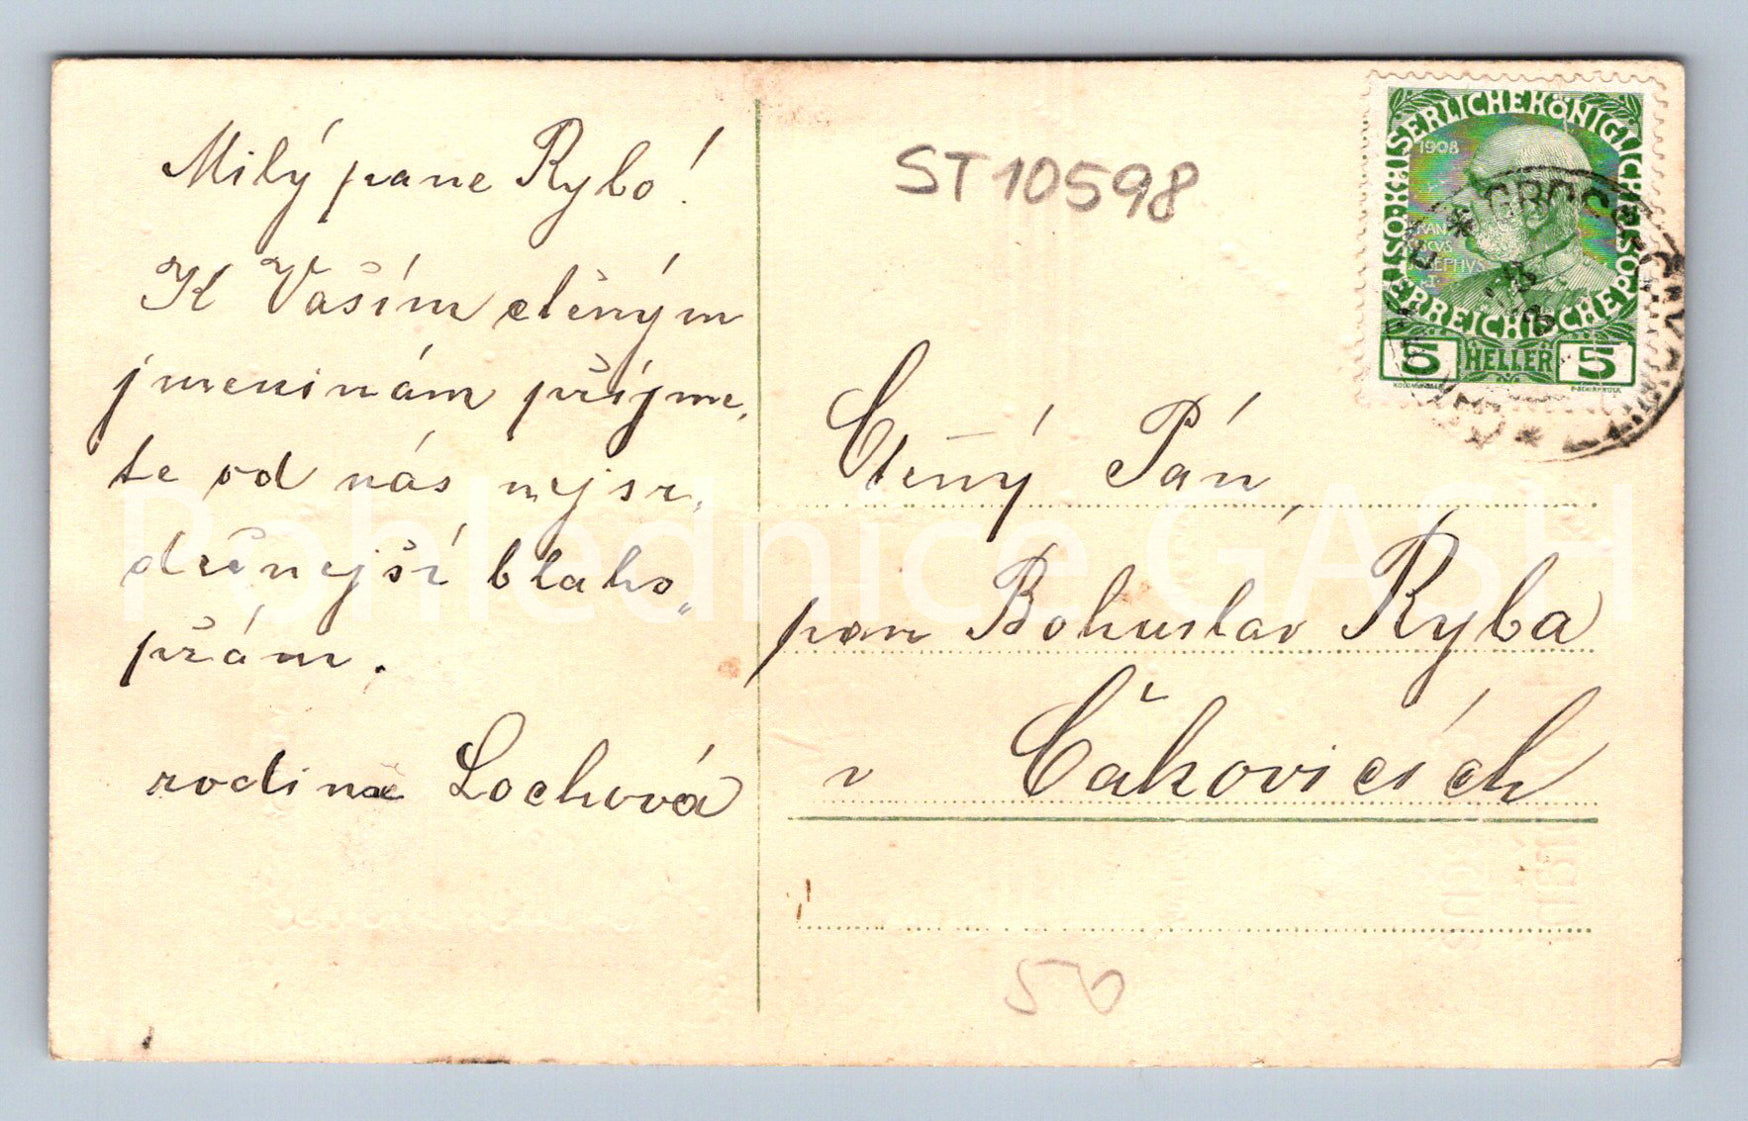 Milý pane Rybo!
K Vaším ctěným
jmeninám příjme,
te od nás nejsr,
dečnejší blaho„
přám.
rodina Lochová
ST 10598
KAISERLICHEKÖNIGLICHE
ÖSTERREICHISCHEPOST
1908
5 HELLER 5
Ctěný Pán,
pan Bohuslav Ryba
v Čakovicích
50
Pohlednice GASH